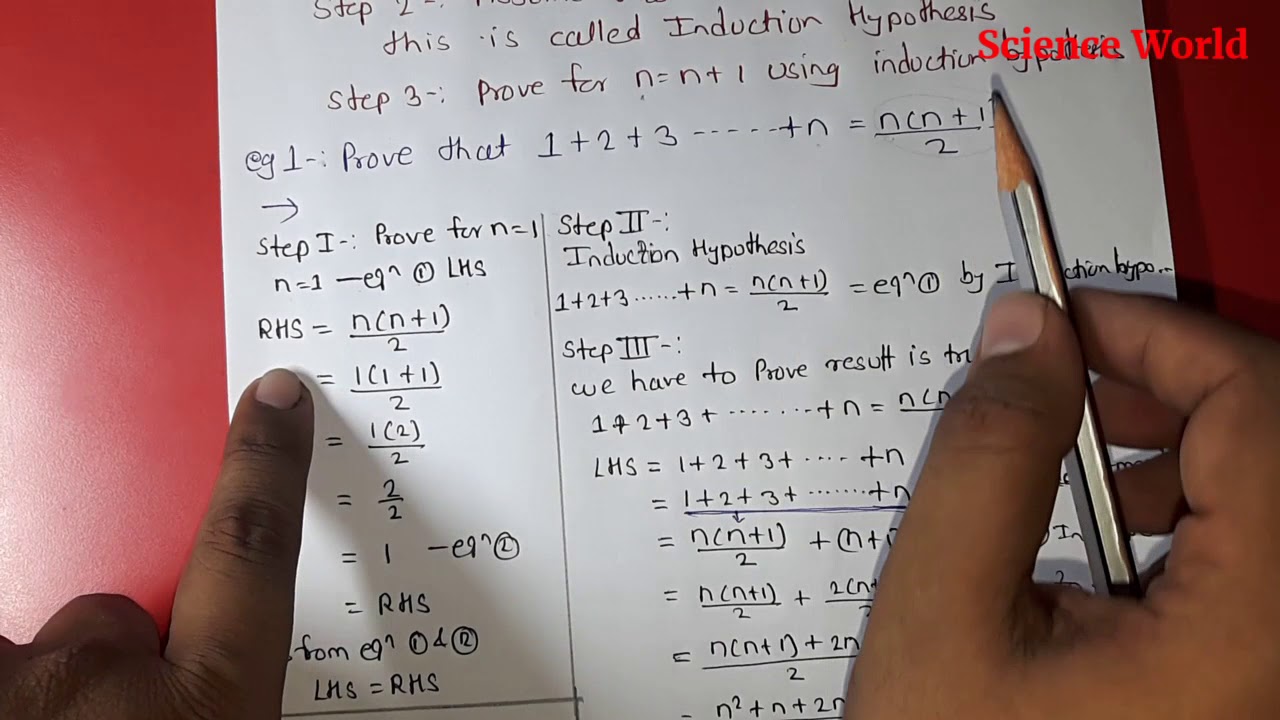 Step 2-:
this is called Induction Hypothesis
Science World
Step 3-: Prove for n=n+1 using induction
eg 1-: Prove that 1+2+3-----+n = n(n+1)/2
→
Step I-: Prove for n=1
n=1 —eqⁿ ① LHS
RHS = n(n+1)/2
= 1(1+1)/2
= 1(2)/2
= 2/2
= 1 —eqⁿ②
= RHS
from eqⁿ ① & ②
LHS = RHS
Step II-:
Induction Hypothesis
1+2+3......+n = n(n+1)/2 = eqⁿ① by
Step III-:
we have to Prove result is
1+2+3+........+n =
LHS = 1+2+3+.....+n
= 1+2+3+.......+n
= n(n+1)/2 +
= n(n+1)/2 +
= n(n+1)+2n /2
= n²+n+2n